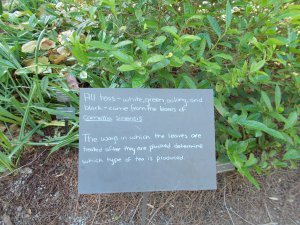 All teas - white, green, oolong, and
black - come from the leaves of
Camellia Sinensis
The ways in which the leaves are
treated after they are plucked determine
which type of tea is produced.